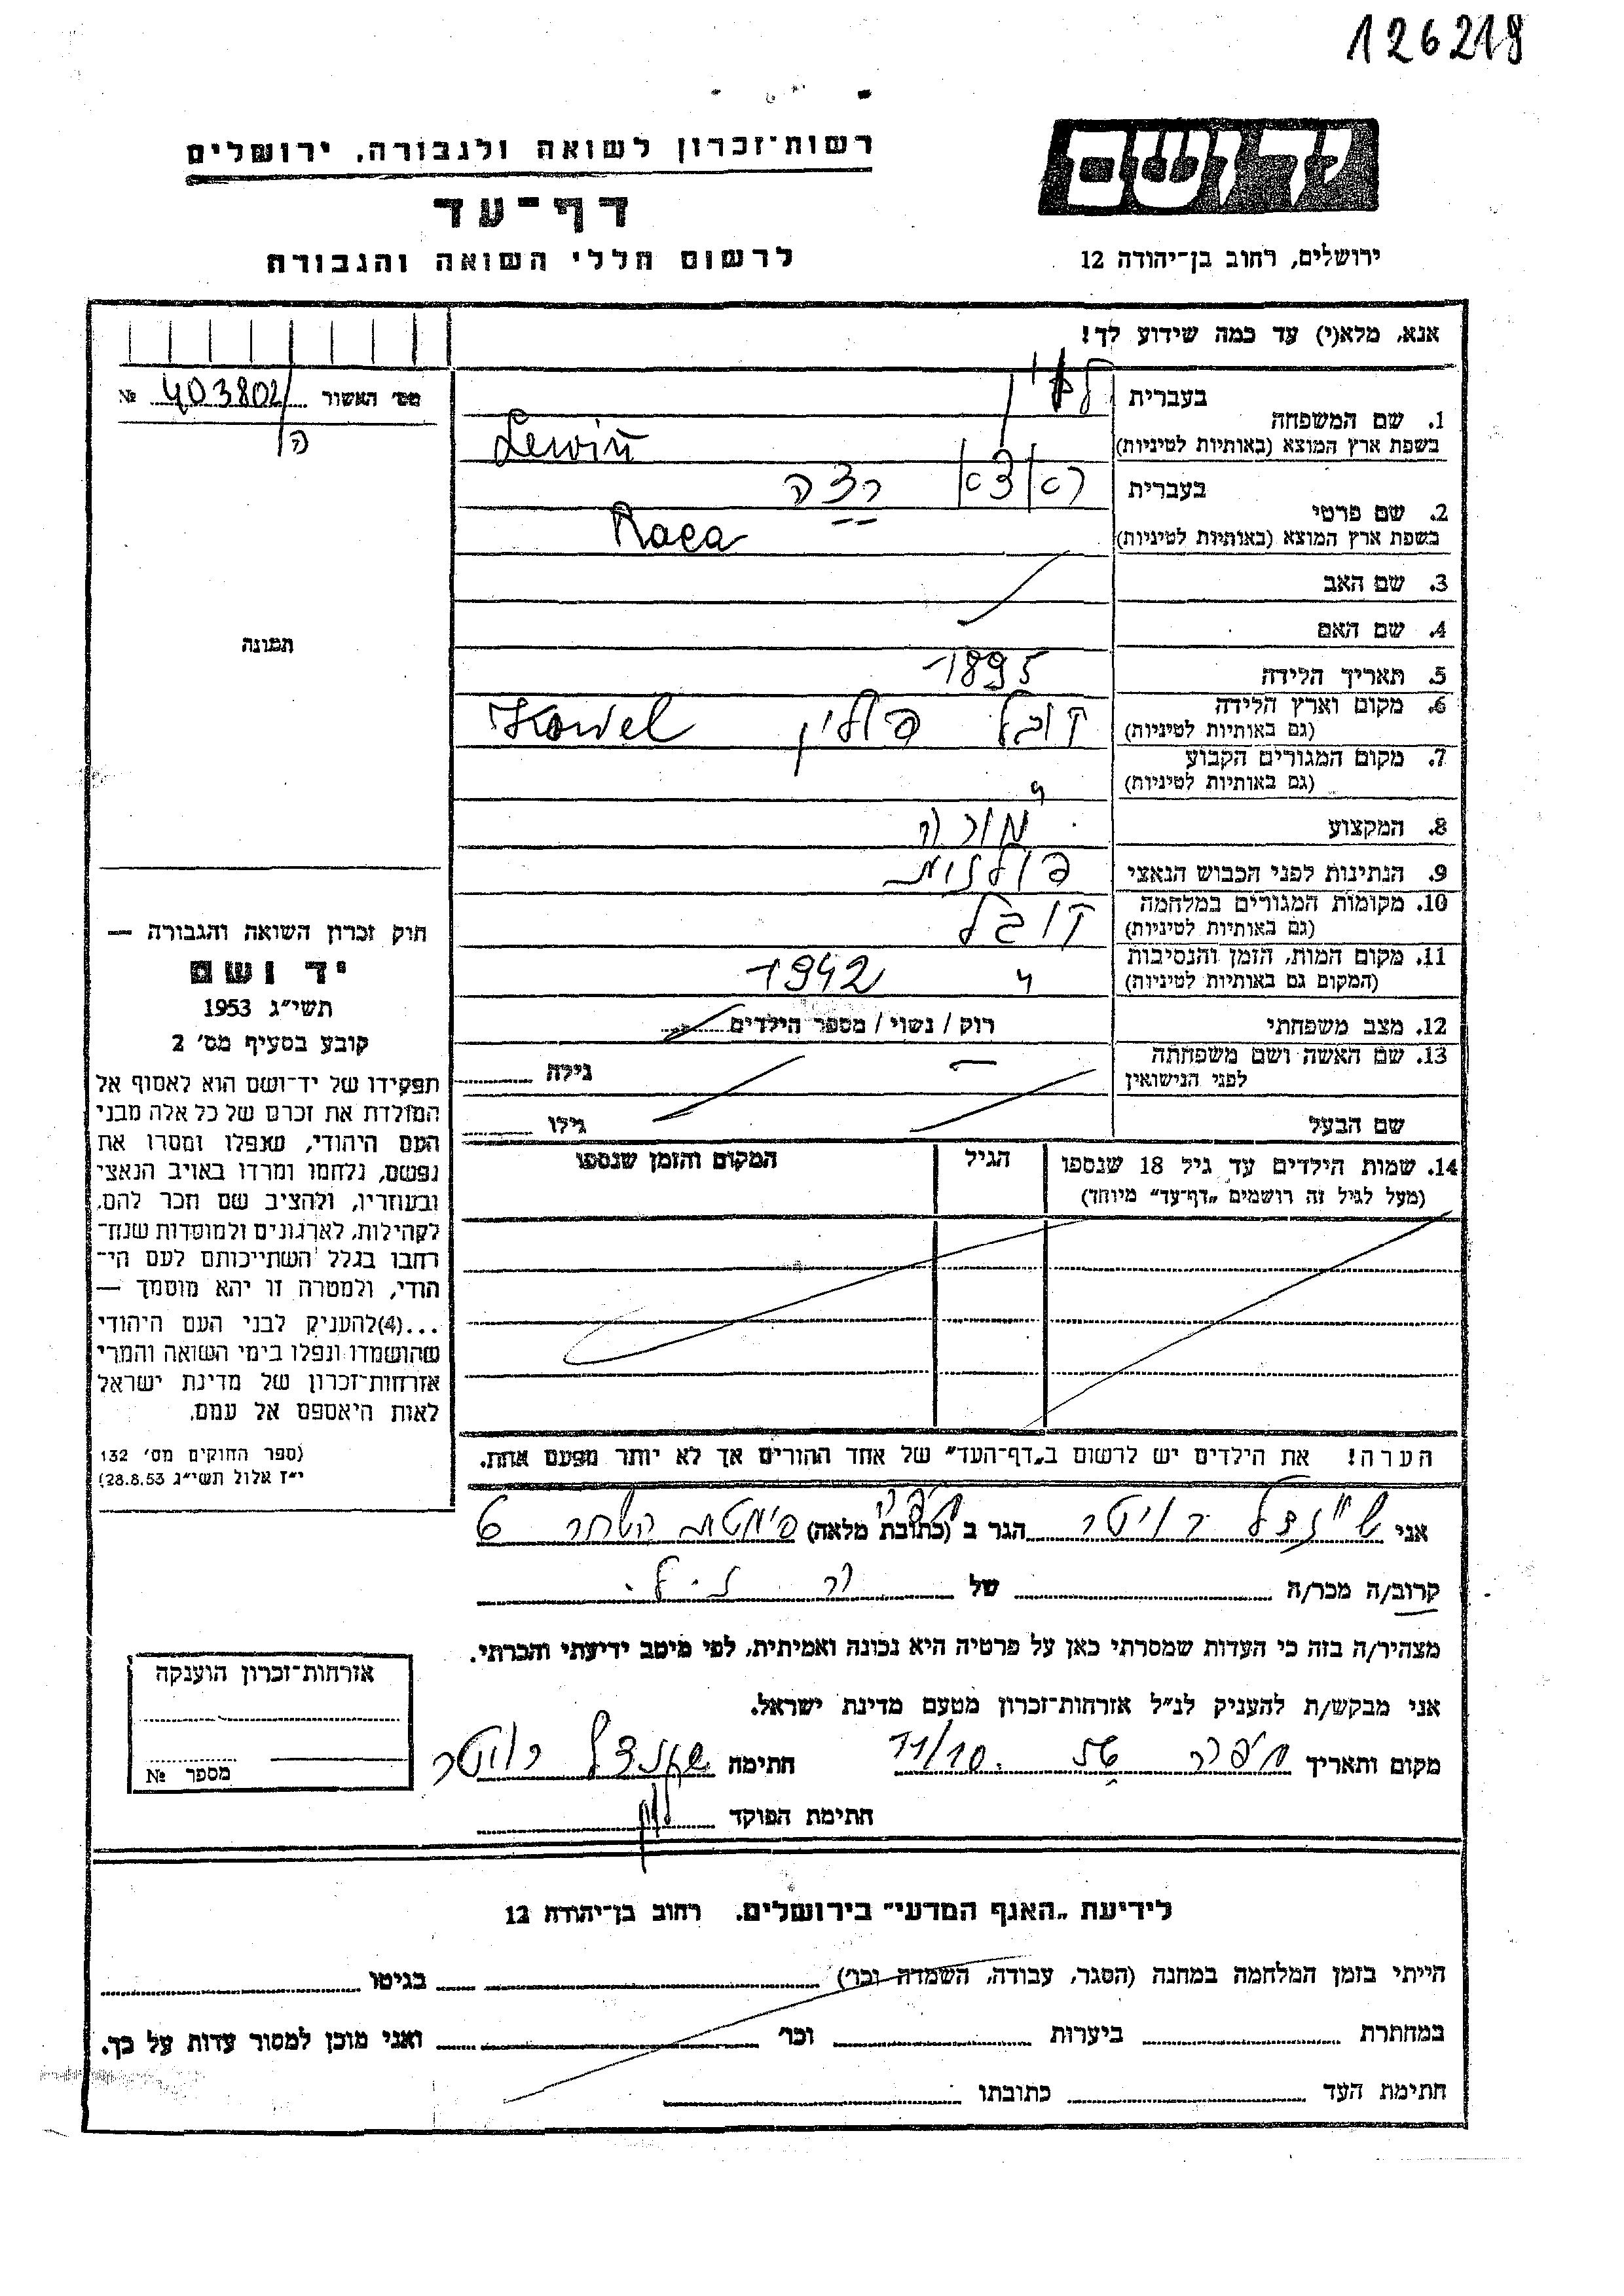 126218
יד ושם
ירושלים, רחוב בן־יהודה 12
רשות־זכרון לשואה ולגבורה, ירושלים
דף־עד
לרשום חללי השואה והגבורה
אנא, מלא(י) עד כמה שידוע לך!
מס׳ האשור 403802 №
ה
תמונה
חוק זכרון השואה והגבורה —
יד ושם
תשי״ג 1953
קובע בסעיף מס׳ 2
תפקידו של יד־ושם הוא לאסוף אל
המולדת את זכרם של כל אלה מבני
העם היהודי, שנפלו ומסרו את
נפשם, נלחמו ומרדו באויב הנאצי
ובעוזריו, ולהציב שם וזכר להם,
לקהילות, לארגונים ולמוסדות שנח־
רבו בגלל השתייכותם לעם הי־
הודי, ולמטרה זו יהא מוסמך —
...(4)להעניק לבני העם היהודי
שהושמדו ונפלו בימי השואה והמרי
אזרחות־זכרון של מדינת ישראל
לאות היאספם אל עמם.
(ספר החוקים מס׳ 132
י״ז אלול תשי״ג 28.8.53)
1. שם המשפחה
בעברית לוין
בשפת ארץ המוצא (באותיות לטיניות) Lewin
2. שם פרטי
בעברית ראצא רצה
בשפת ארץ המוצא (באותיות לטיניות) Raca
3. שם האב
4. שם האם
5. תאריך הלידה 1895
6. מקום וארץ הלידה קובל פולין Kowel
(גם באותיות לטיניות)
7. מקום המגורים הקבוע "
(גם באותיות לטיניות)
8. המקצוע מורה
9. הנתינות לפני הכבוש הנאצי פולנית
10. מקומות המגורים במלחמה קובל
(גם באותיות לטיניות)
11. מקום המות, הזמן והנסיבות " 1942
(המקום גם באותיות לטיניות)
12. מצב משפחתי רוק / נשוי / מספר הילדים
13. שם האשה ושם משפחתה — גילה
לפני הנישואין
שם הבעל גילו
14. שמות הילדים עד גיל 18 שנספו הגיל המקום והזמן שנספו
(מעל לגיל זה רושמים „דף־עד״ מיוחד)
הערה! את הילדים יש לרשום ב„דף־העד״ של אחד ההורים אך לא יותר מפעם אחת.
אני שיינדל רויטר הגר ב (כתובת מלאה) חיפה סימטת השחר 6
קרוב/ה מכר/ה של
מצהיר/ה בזה כי העדות שמסרתי כאן על פרטיה היא נכונה ואמיתית, לפי מיטב ידיעתי והכרתי.
אני מבקש/ת להעניק לנ״ל אזרחות־זכרון מטעם מדינת ישראל.
מקום ותאריך חיפה 11/10. חתימה שיינדל רויטר
חתימת הפוקד
אזרחות־זכרון הוענקה
מספר №
לידיעת „האגף המדעי״ בירושלים, רחוב בן־יהודה 12
הייתי בזמן המלחמה במחנה (הסגר, עבודה, השמדה וכו׳) בגיטו
במחתרת ביערות וכו׳ ואני מוכן למסור עדות על כך.
חתימת העד כתובתו